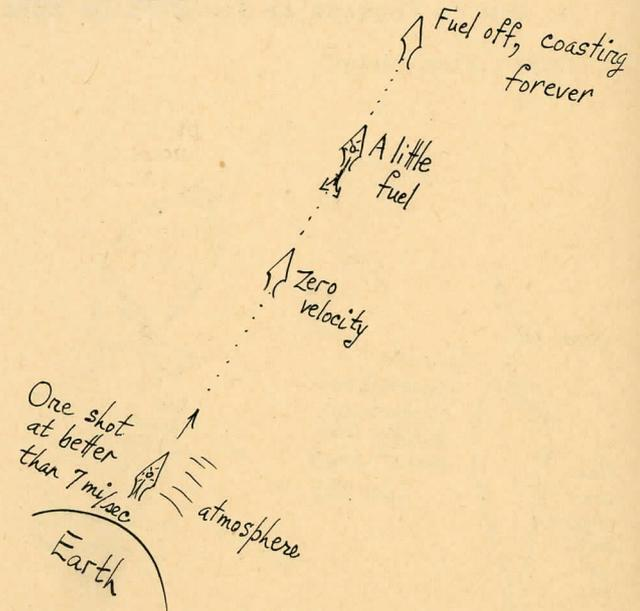 Fuel off, coasting
forever
A little
fuel
Zero
velocity
One shot
at better
than 7 mi/sec
atmosphere
Earth